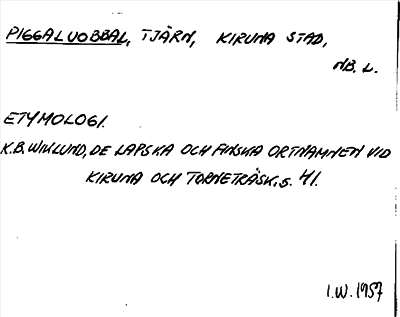 PIGGALUOBBAL, TJÄRN, KIRUNA STAD,
NB. L.
ETYMOLOGI.
K.B. WIKLUND, DE LAPSKA OCH FINSKA ORTNAMNEN VID
KIRUNA OCH TORNETRÄSK, S. 41.
I.W. 1957